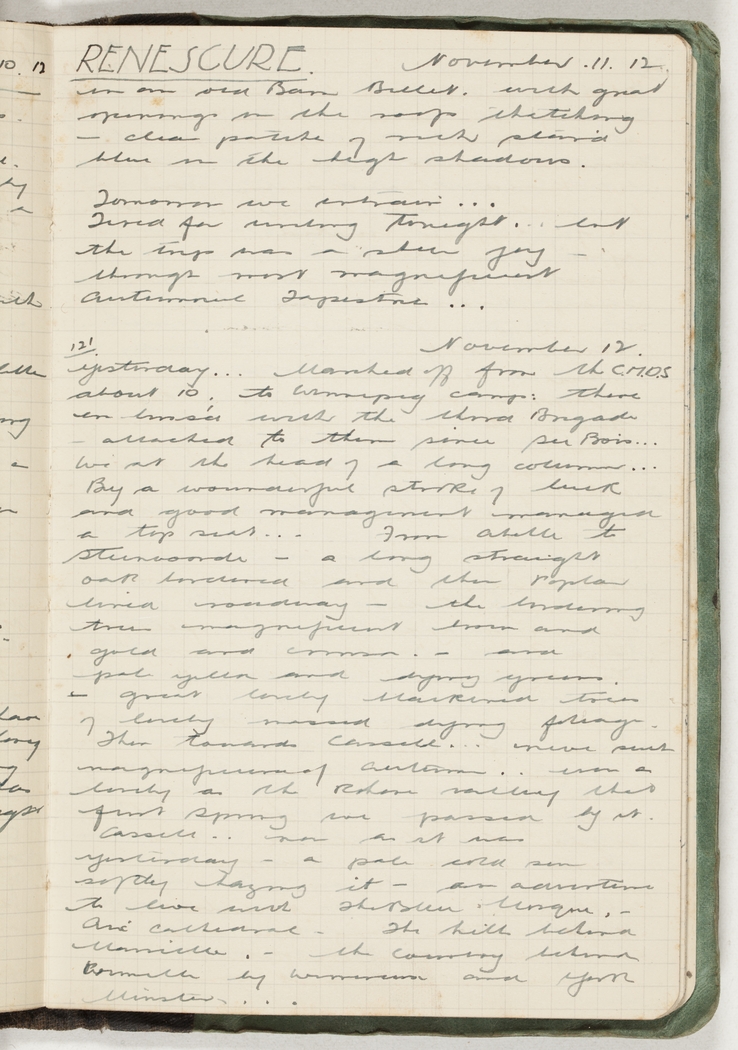 RENESCURE. November .11. 12.
in an old Barn Billet. with great
openings in the roofs thatching
– clear patche of rich starr'd
blue in the high shadows.
Tomorrow we entrain ...
Tired for writing tonight... but
the trip was a sheer joy –
through most magnificent
Autumnal Tapestrie ...
121. November 12.
yesterday... Marched off from the C.M.D.S
about 10. to Winnipeg camp: there
en-buss'd with the third Brigade
– attached to them since Sec Bois...
We at the head of a long column...
By a wounderful stroke of luck
and good management managed
a top seat... From Abelle to
Steenvoorde – a long straight
oak bordered and then Poplar
lined roadway – the bordering
trees magnificent brown and
gold and crimson. – and
pale yellow and dying greens.
– great lovely blackened trees
of lovely massed dying foliage.
Then towards Cassell... never such
magnificence of Autumn.. even as
lovely as the Rhone valley that
first Spring we passed by it.
Cassell.. now as it was
yesterday – a pale cold sun
softly hazing it – an adventure
to live with The Blue Mosque, –
Aix cathedral – The hills behind
Marseille. – the country behind
by Wimereux and York
Minster. . . .